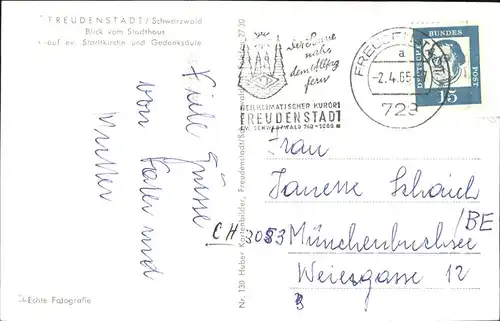 FREUDENSTADT/Schwarzwald
Blick vom Stadthaus
auf ev. Stadtkirche und Gedenksäule
Viele Grüsse
von Vater und
Mutter
Echte Fotografie
Nr. 130 Huber Kartenbilder, Freudenstadt/Schw
27 30
Der Sonne
nahe
dem Alltag
fern
HEILKLIMATISCHER KURORT
FREUDENSTADT
IM SCHWARZWALD 740-1000 m
FREUDENSTADT
a
-2.4.65
729
DEUTSCHE BUNDESPOST
15
Frau
Janette Schaich
CH 3053 Münchenbuchsee /BE
Weiergasse 12